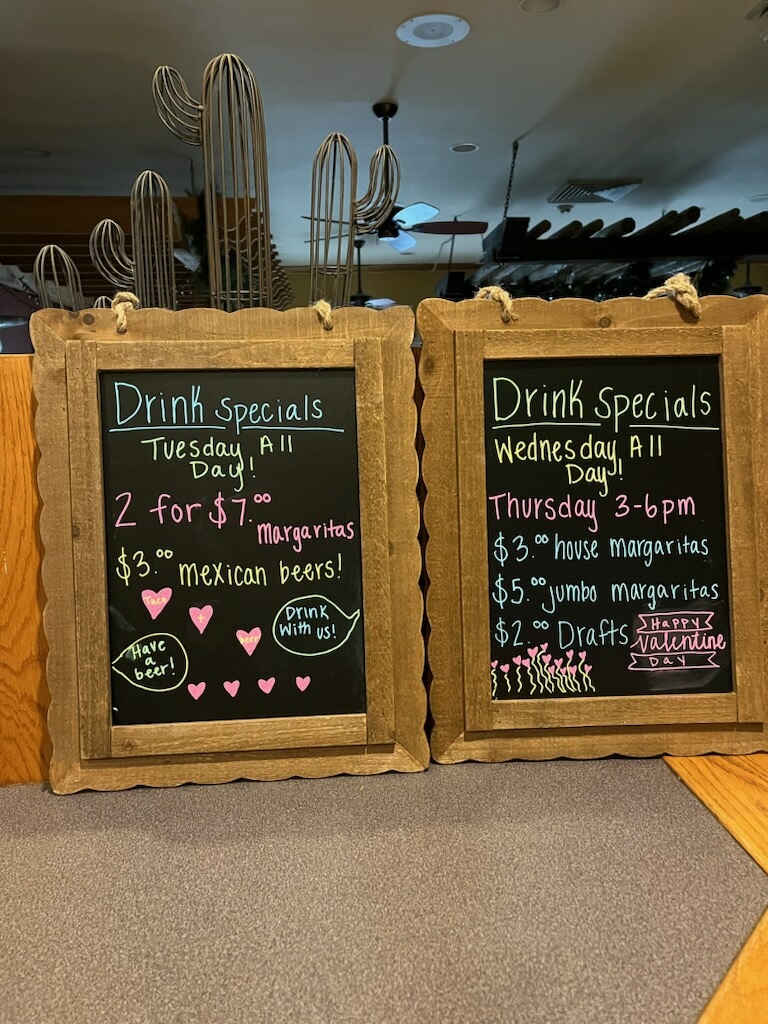 Drink Specials
Tuesday All
Day!
2 for $7.00
Margaritas
$3.00 mexican beers!
Taco
+
beer
Drink
With us!
Have
a
beer!
Drink Specials
Wednesday All
Day!
Thursday 3-6pm
$3.00 house margaritas
$5.00 jumbo margaritas
$2.00 Drafts
Happy
Valentine
Day